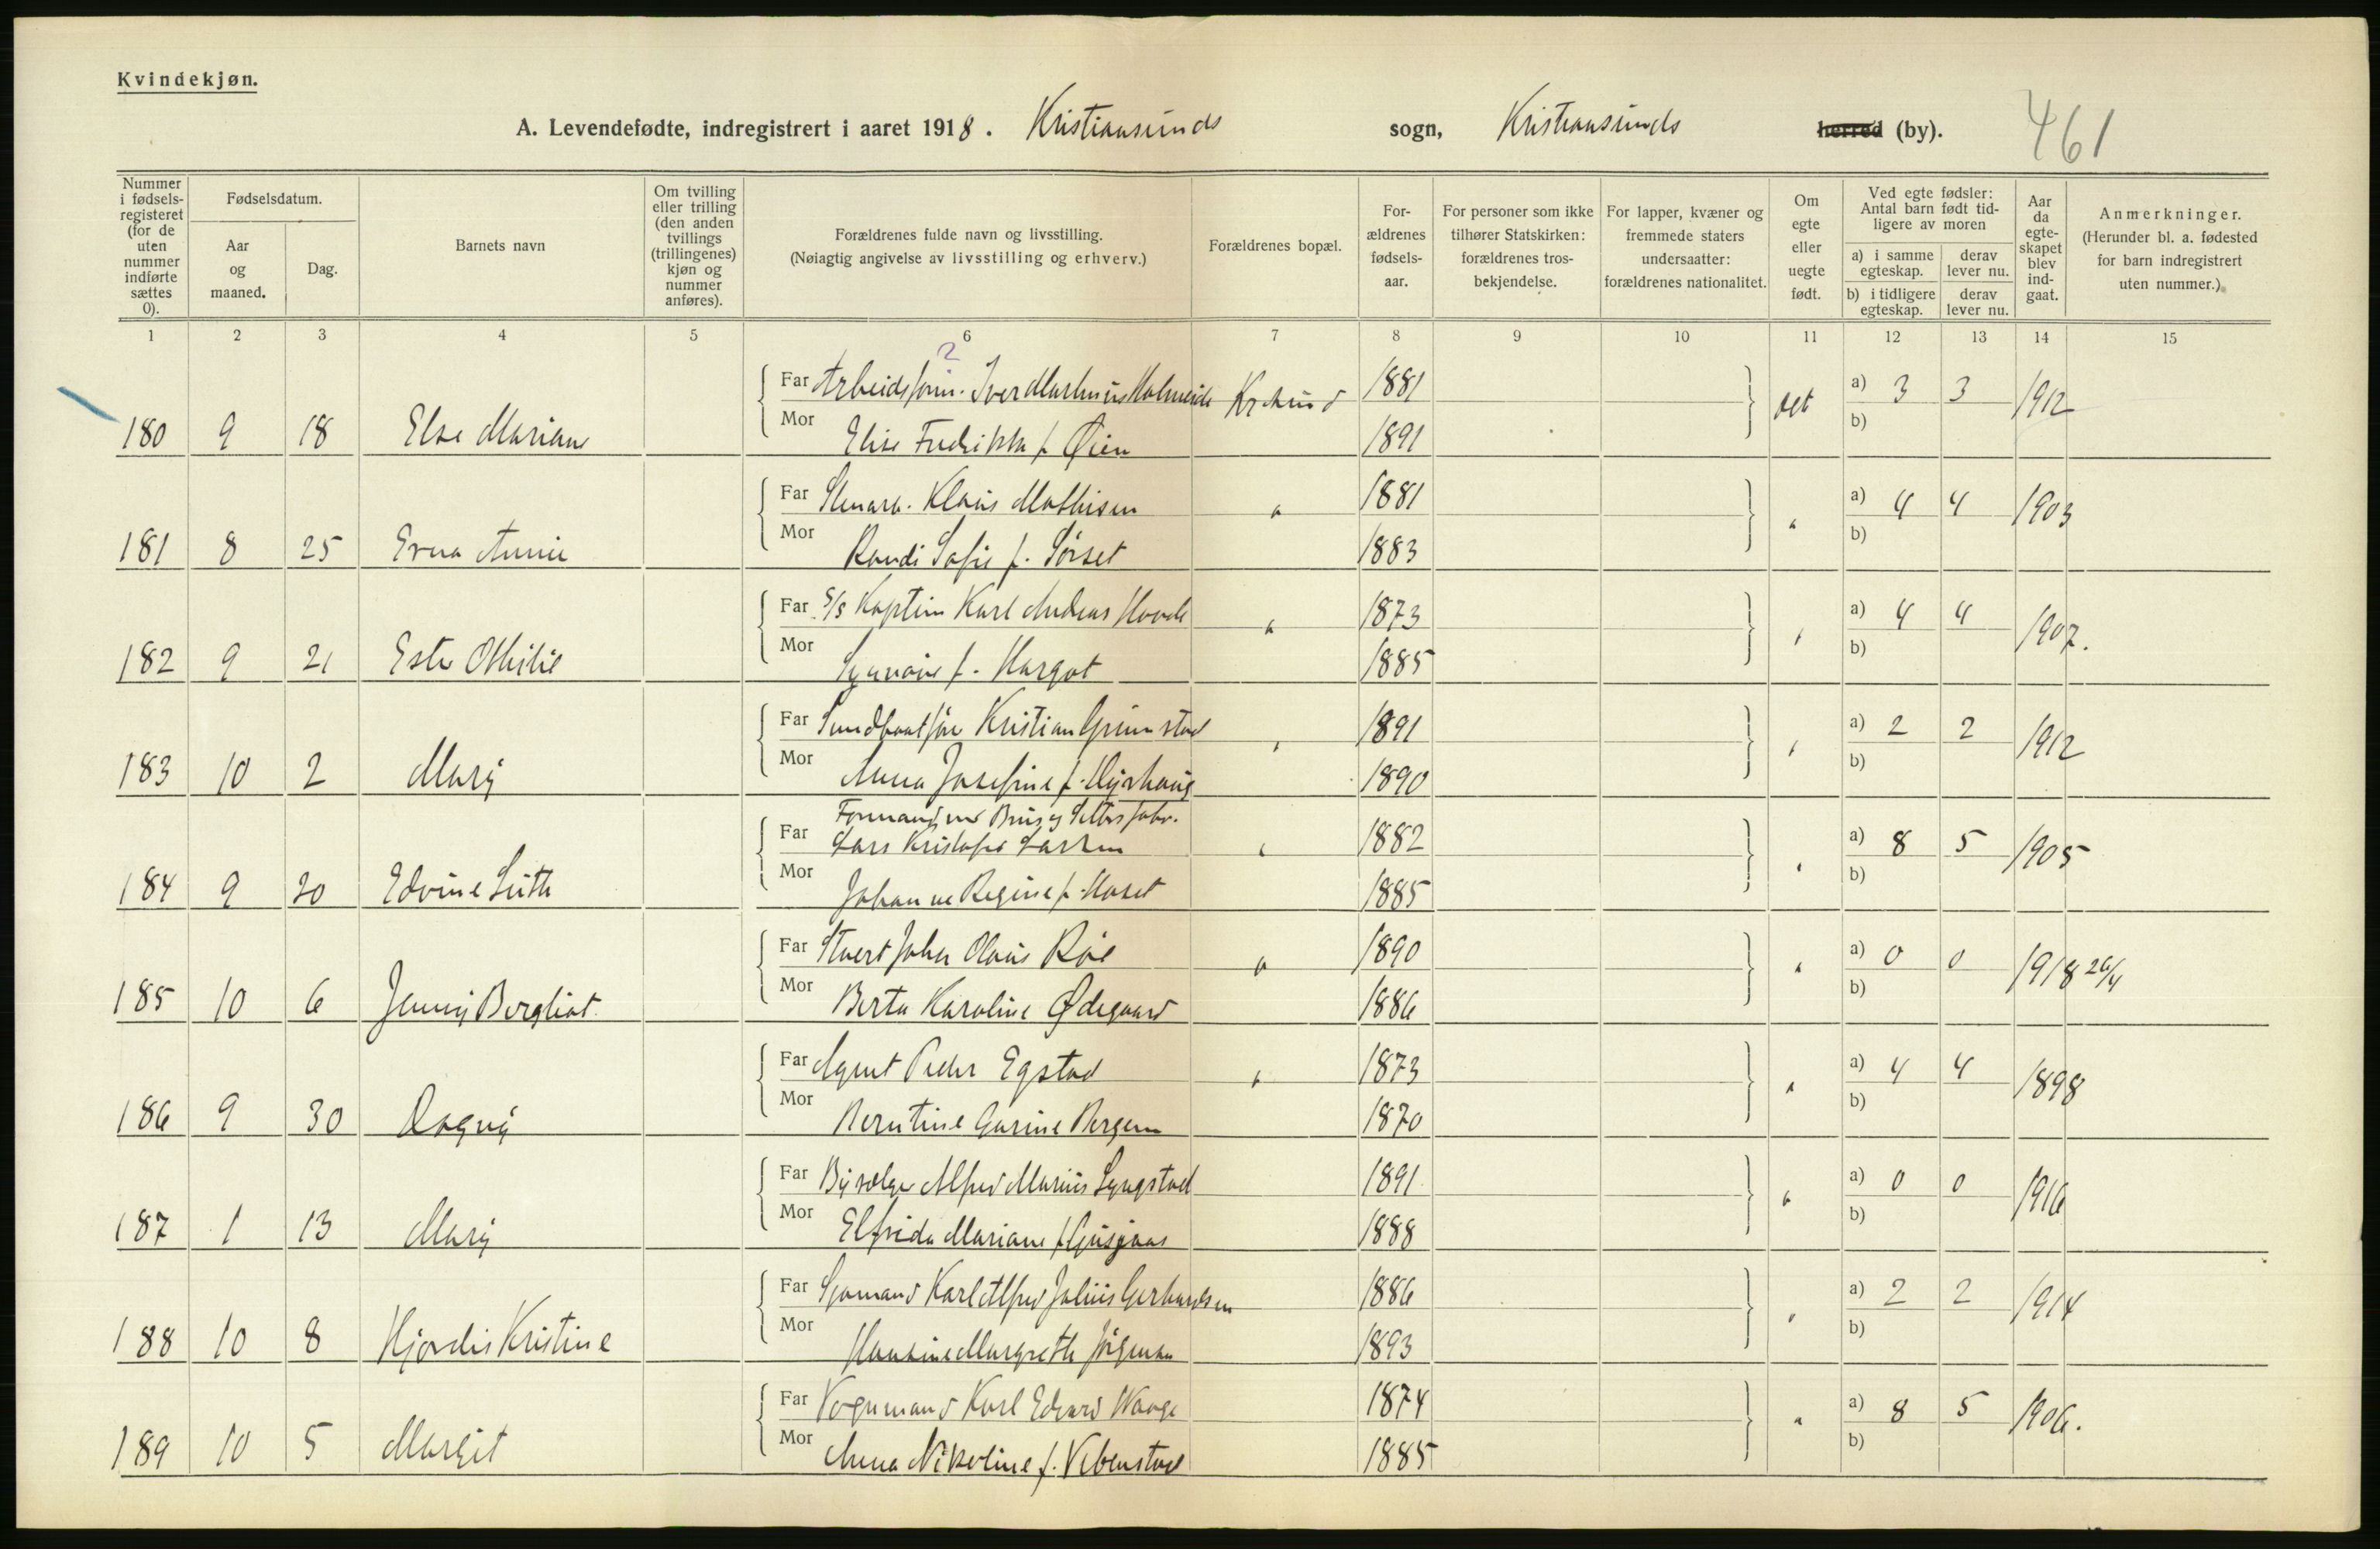 Kvindekjøn.
A. Levendefødte, indregistrert i aaret 1918. Kristiansunds sogn, Kristiansunds herred (by). 461
Nummer i fødsels-registeret (for de uten nummer indførte sættes 0).
Fødselsdatum.
Aar og maaned.
Dag.
Barnets navn
Om tvilling eller trilling (den anden tvillings (trillingenes) kjøn og nummer anføres).
Forældrenes fulde navn og livsstilling.
(Nøiagtig angivelse av livsstilling og erhverv.)
Forældrenes bopæl.
For-ældrenes fødsels-aar.
For personer som ikke tilhører Statskirken: forældrenes tros-bekjendelse.
For lapper, kvæner og fremmede staters undersaatter: forældrenes nationalitet.
Om egte eller uegte født.
Ved egte fødsler: Antal barn født tid-ligere av moren
a) i samme egteskap.
derav lever nu.
b) i tidligere egteskap.
derav lever nu.
Aar da egte-skapet blev ind-gaat.
Anmerkninger.
(Herunder bl. a. fødested for barn indregistrert uten nummer.)
1 2 3 4 5 6 7 8 9 10 11 12 13 14 15
2
Far Arbeidsform. Iver Markusius Halmeide Krsund 1881 a) 3 3 1912
180 9 18 Else Mariane Mor Elise Fredrikka f. Øien 1891 b)
Far Stenarb. Klaus Mathisen " 1881 " a) 4 4 1903
181 8 25 Erna Annie Mor Randi Sofie f. Sørset 1883 b)
Far S/s Kaptein Karl Andreas Hovde " 1873 " a) 4 4 1907.
182 9 21 Ester Othilie Mor f. Hargot 1885 b)
Far Sundbaatfør Kristian Grimstad " 1891 " a) 2 2 1912
183 10 2 Mary Mor Anna Josefine f. Myrhaug 1890 b)
Formand ved Brus og Selters fabr.
Far Lars Kristofer Larsen " 1882 " a) 8 5 1905
184 9 20 Edvine Mor Johanne Regine f. Haset 1885 b)
Far Stuert Johan Olaus Røe " 1890 " a) 0 0 1918 26/4
185 10 6 Jenny Bergliot Mor Berta Karoline Ødegaard 1886 b)
Far Agent Peder Egstad " 1873 " a) 4 4 1898
186 9 30 Dagny Mor Berntine Gurine Bergem 1870 b)
Far Alfred Marius Lyngstad 1891 " a) 0 0 1916
187 1 13 Mary Mor Elfrida Mariane f. 1888 b)
Far Sjømand Karl Alfred Julius Gerhardsen 1886 " a) 2 2 1914
188 10 8 Hjørdis Kristine Mor Hansine Margrethe Jørgensen 1893 b)
Far Vognmand Karl Edvard Waage 1874 " a) 8 5 1906.
189 10 5 Margit Mor Anna Nikoline f. Vebenstad 1885 b)